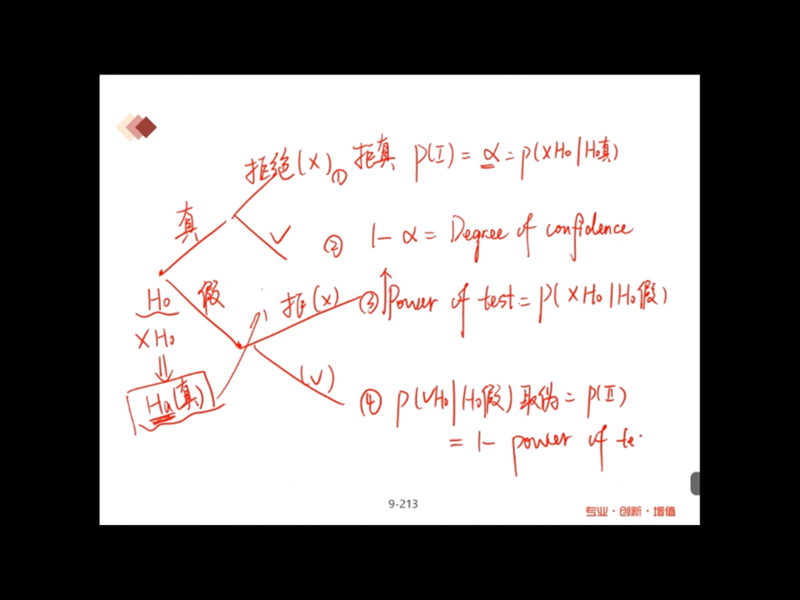 拒绝(X) ① 拒真 P(I) = α = P(XH₀|H₀真)
真
√ ② 1-α = Degree of confidence
H₀ 假 拒(X) ↑ ③ Power of test = P(XH₀|H₀假)
XH₀
⇓
Ha(真)
(√) ④ P(√H₀|H₀假) 取伪 = P(II)
= 1- power of te
9-213
专业·创新·增值